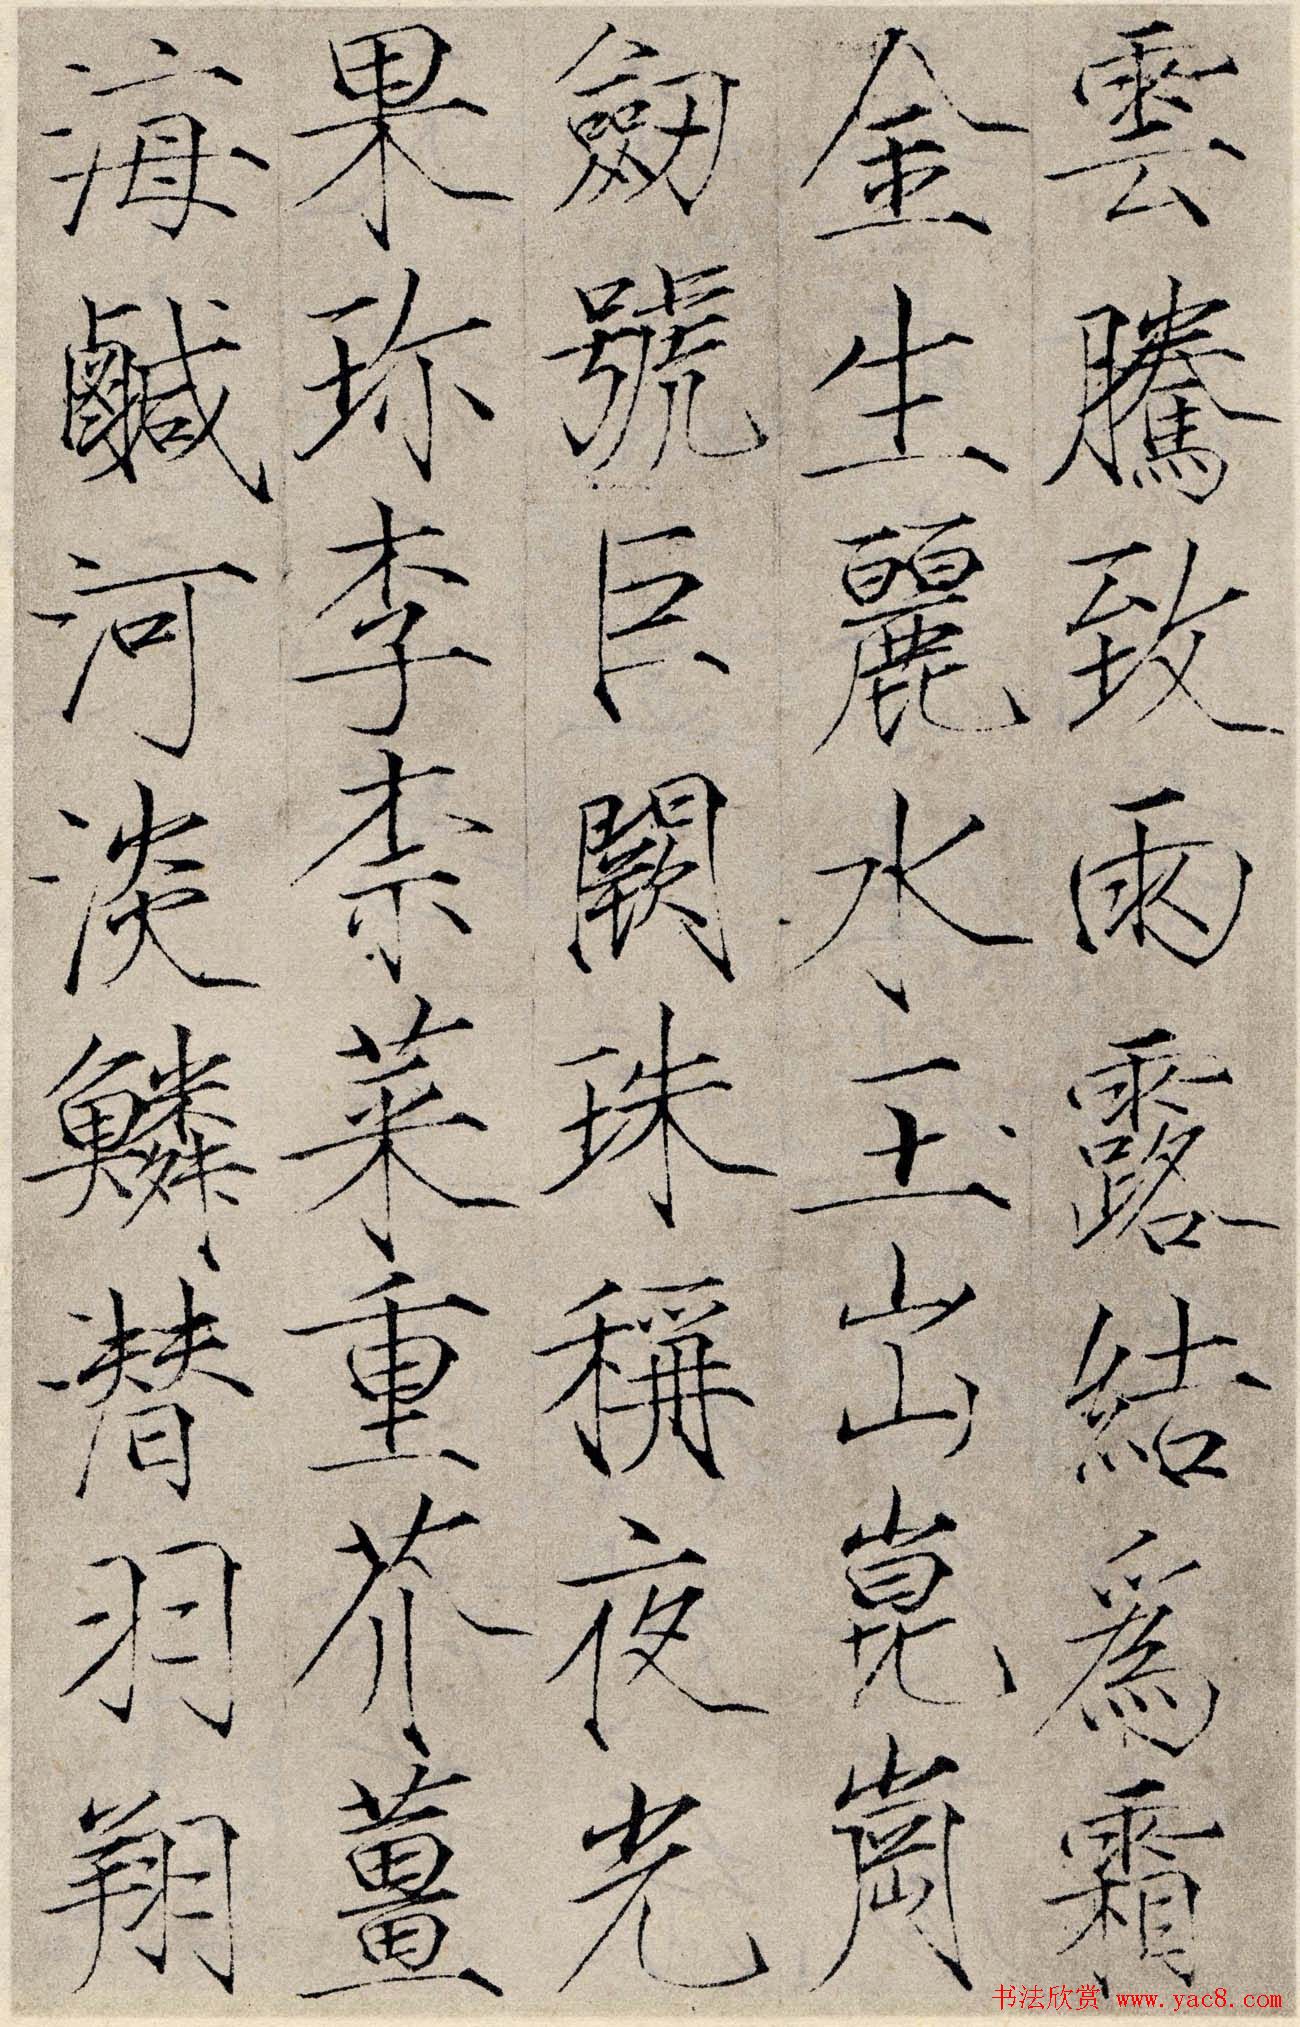 雲騰致雨露結為霜
金生麗水玉出崑崗
劒號巨闕珠稱夜光
果珎李柰菜重芥薑
海鹹河淡鱗潛羽翔
书法欣赏 www.yac8.com